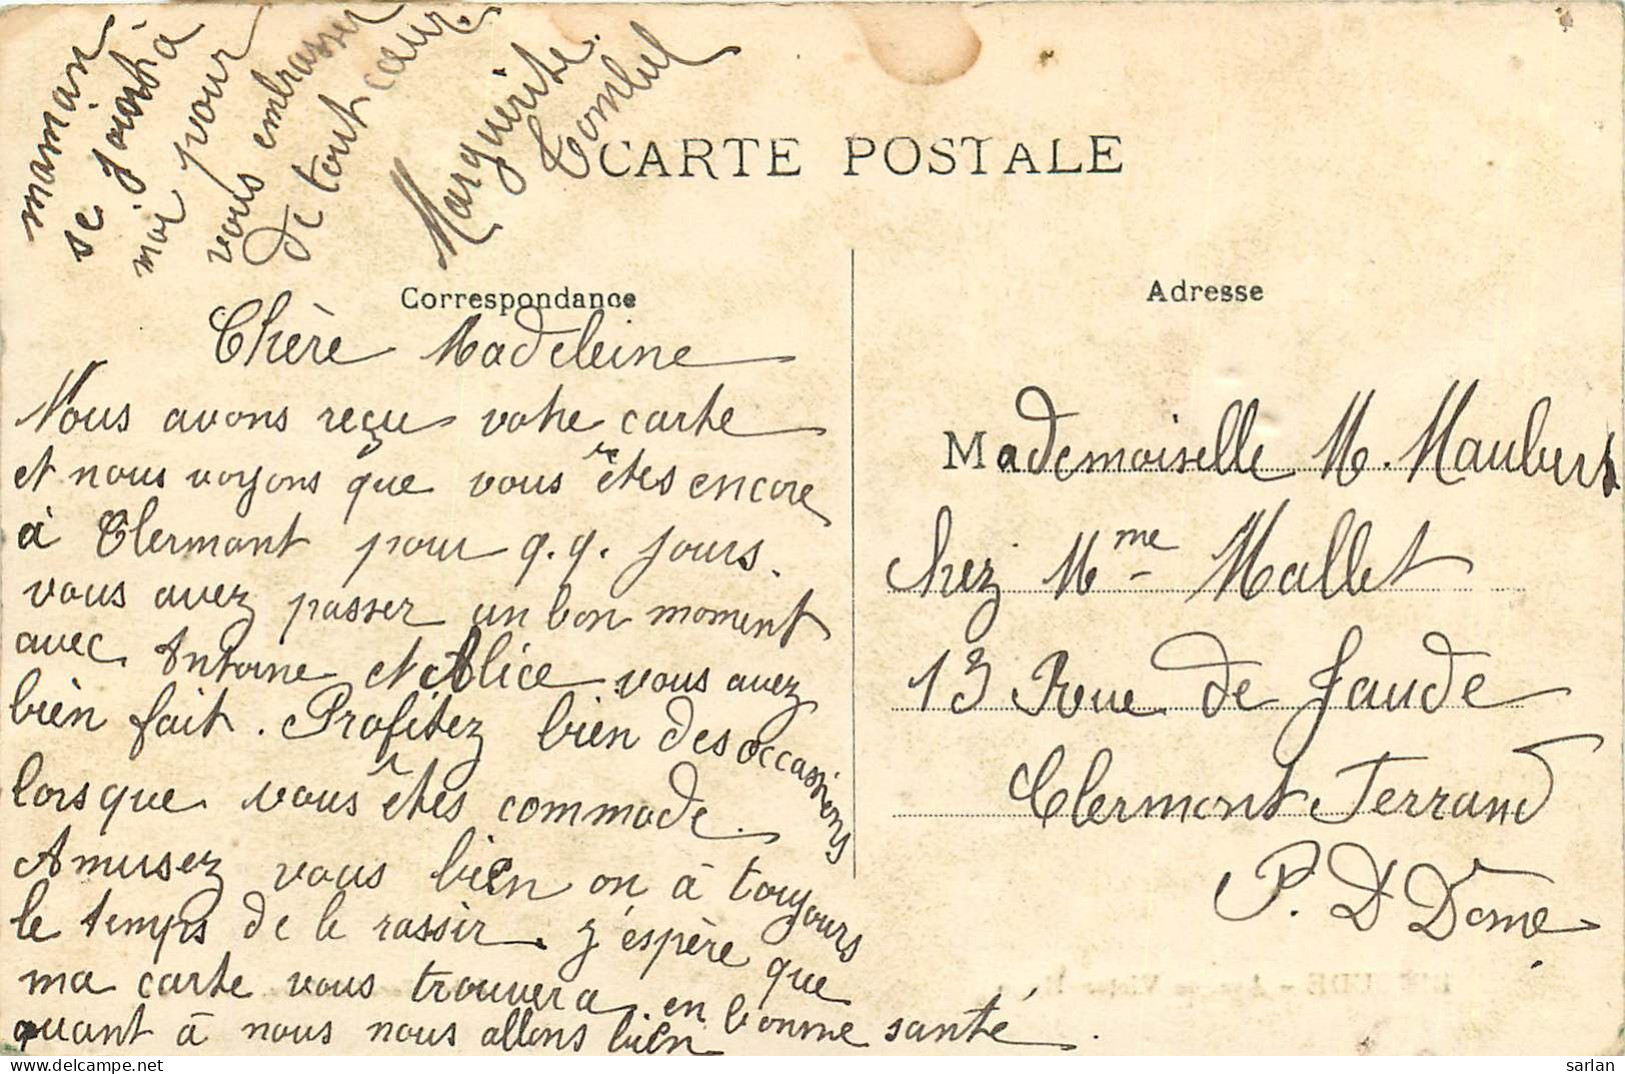 maman
se joint à
moi pour
vous embrasser
de tout cœur.
Marguerite
CARTE POSTALE
Correspondance
Adresse
Chère Madeleine
Nous avons reçu votre carte
et nous voyons que vous êtes encore
à Clermont pour q.q. jours.
vous avez passer un bon moment
avec Antoine et Alice vous avez
bien fait. Profitez bien des occassions
lorsque vous êtes commode.
Amusez vous bien on à toujours
le temps de le rassir. J'espère que
ma carte vous trouvera en bonne santé.
quant à nous nous allons bien
Mademoiselle M. Maubert
chez Mme Mallet
13 Rue de Jaude
Clermont Ferrand
P. D Dome
sarlan